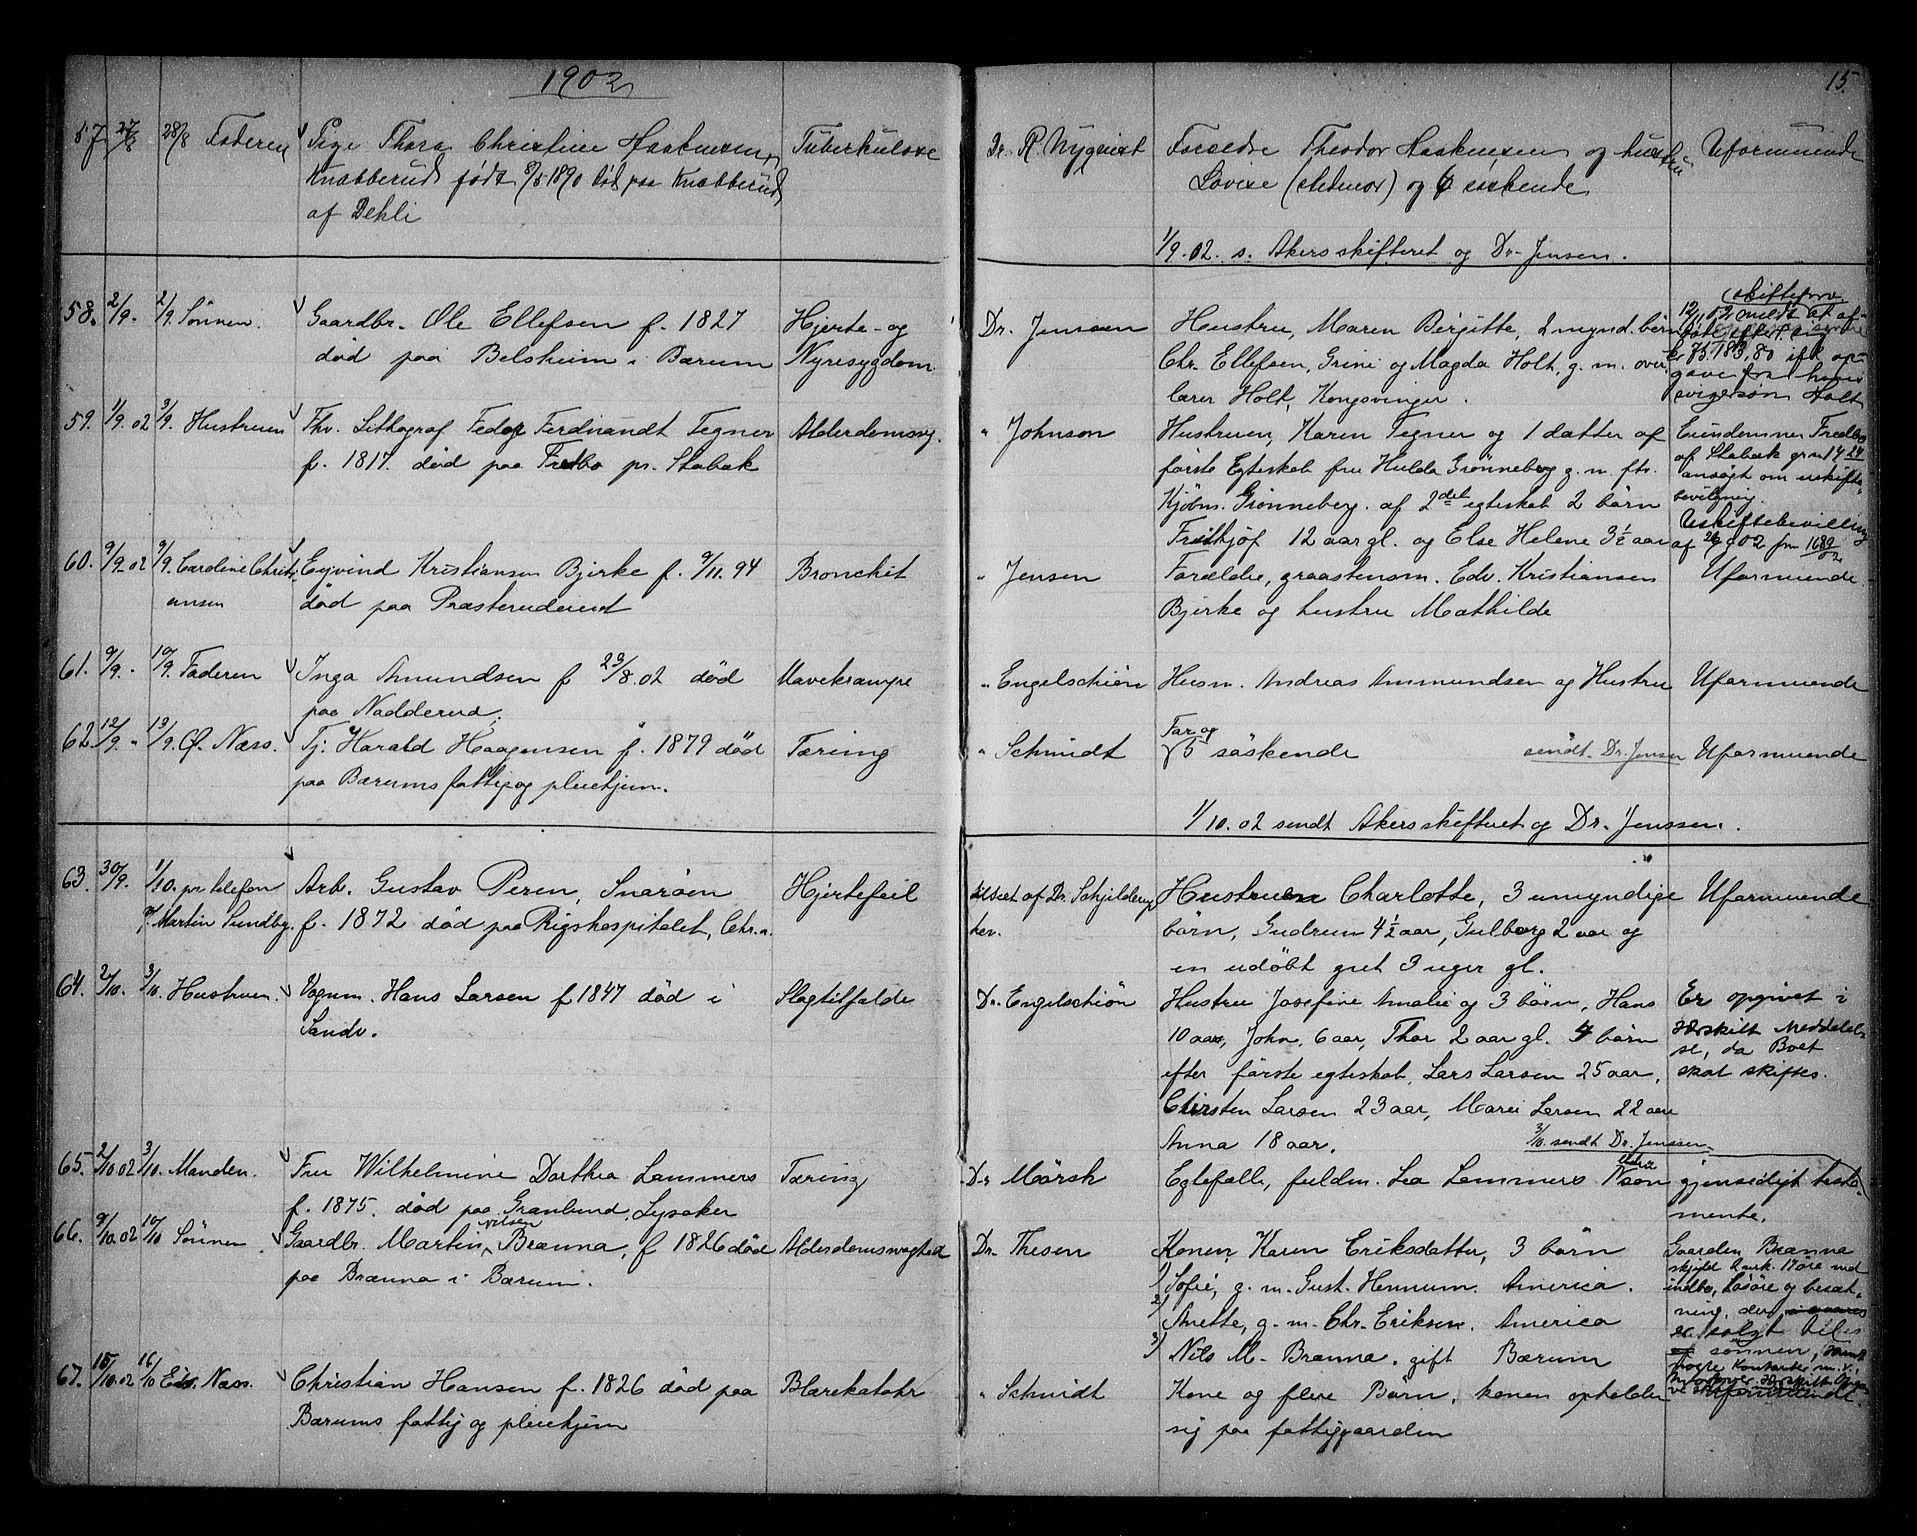 1902
15.
57. 27/8 28/8 Faderen Pige Thora Christine Haakensen, Tuberkulose
Knabberud født 8/5 1890 død paa Knabberud
af Dehli
Dr. R. Nyquist Forældre Theodor Haakensen og hustru Uformuende
Lovise (stedmor) og 6 søskende
1/9.02. s. Akersskifteret og Dr. Jensen.
58. 2/9. 2/9. Sønnen. Gaardbr. Ole Ellefsen f. 1827 Hjerte- og
død paa Belsheim i Bærum Nyresygdom.
Dr. Jenssen Hustru, Maren Birgitte, 2 mynd. børn
Chr. Ellefsen, Grini og Magda Holt, g. m. over
lærer Holt, Kongsvinger.
svigersøn Holt
59. 1/9.02 3/9. Hustruen Fhv. Lithograf Fedor Ferdinandt Tegner Alderdomssv.
f. 1817. død paa Fredbo pr. Stabæk
" Johnson Hustruen, Karen Tegner og 1 datter af
første Egteskab fru Hulda Grønneberg g. m. fhv.
Kjøbm. Grønneberg. af 2det egteskab 2 børn
Fritjof 12 aar gl. og Else Helene 3 1/2 aar
Eiendommen Fredbo
af Stabæk gr. n. 14
ansøgt om uskifte-
bevilgning.
Uskiftebevilling
60. 9/9.02 9/9. Caroline Christi- Eyvind Kristiansen Bjerke f. 9/11.94 Bronchit
ansen død paa Præsterudeiet
" Jensen Forældre, graastensm. Edv. Kristiansen Uformuende
Bjerke og hustru Mathilde
61. 9/9. 10/9. Faderen Inga Amundsen f 23/8.02 død Mavekrampe
paa Nadderud.
" Engelschiøn Husm. Andreas Ammundsen og Hustru Uformuende
62. 12/9. " 13/9. Ø. Næss. Tj. Harald Haagensen f. 1879 død Tæring
paa Bærums fattig og pleiehjem.
" Schmidt Far og 5 søskende sendt Dr. Jensen Uformuende
1/10.02 sendt Akersskifteret og Dr. Jenssen.
63. 30/9. 1/10. pr. telefon Arb. Gustav Peren, Snarøen Hjertefeil
v/ Martin Sundby. f. 1872 død paa Rigshospitalet, Chr.a.
tilseet af Dr. Schjelderup Hustruen Charlotte, 3 umyndige Uformuende
her. børn, Gudrun 4 1/2 aar, Gulborg 2 aar og
en udøbt gut 3 uger gl.
64. 2/10. 3/10. Hustruen. Vognm. Hans Larsen f 1847 død i Slagtilfælde
Sandv.
Dr. Engelschiøn Hustru Josefine Amalie og 3 børn, Hans
10 aar, John, 6 aar, Thor 2 aar gl. 4 børn
efter første egteskab, Lars Larsen 25 aar,
Chirsten Larsen 23 aar, Marei Larsen 22 aar
Anna 18 aar. 3/10. sendt Dr. Jenssen
Er opgivet i
særskilt Meddelel-
se, da Boet
skal skiftes.
65. 2/10.02 3/10. Manden. Fru Wilhelmine Dorthea Lammers Tæring
f. 1875. død paa Granlund, Lysaker
Dr Mørch Egtefælle, fuldm. Lea Lammers gjensidigt testa-
mente.
66. 9/10.02 10/10 Sønnen Gaardbr. Martin Nilsen Brænna, f 1826 død Alderdomssvaghed
paa Brænna i Bærum.
Dr. Thesen Konen, Karen Eriksdatter, 3 børn
1) Sofie, g. m. Gust. Hennum. America.
2) Anette, g. m. Chr. Eriksen. America
3) Nils M. Brænna, gift Bærum
Gaarden Brænna
skyld 2 mrk. 17 øre med
indbo, Løsøre og besæt-
ning, der
er solgt til
sønnen,
67. 15/10.02 16/10 Edv. Næss. Christian Hansen f. 1826 død paa Blærekatahr
Bærums fattig og pleiehjem
" Schmidt Kone og flere Børn, konen opholder Uformuende.
sig paa fattiggaarden